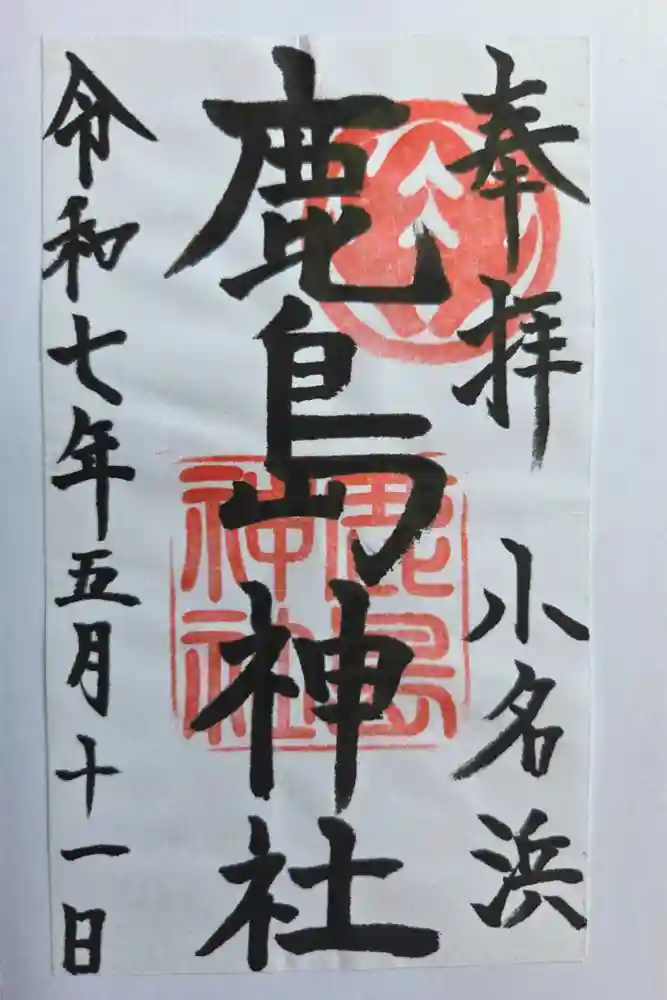 奉拝 小名浜
鹿島神社
鹿島神社
令和七年五月十一日